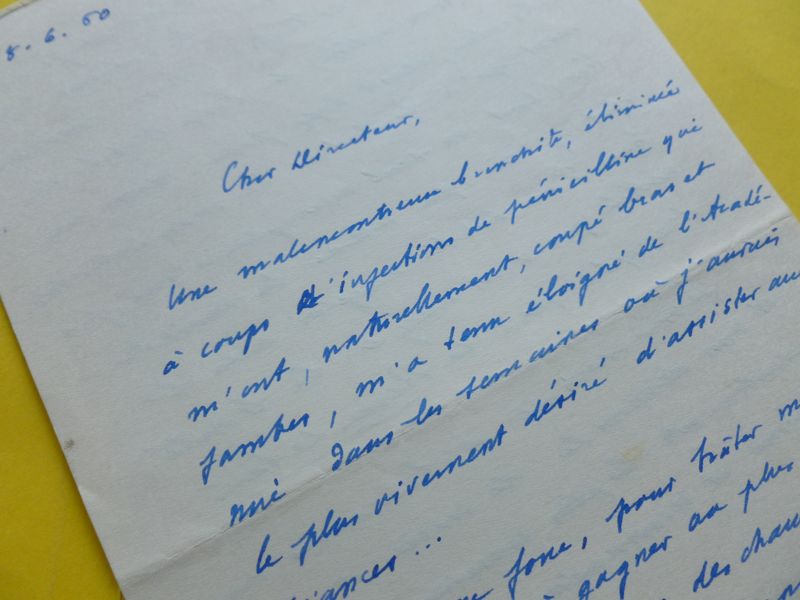 8.6.60
Cher Directeur,
Une malencontreuse bronchite, éliminée
à coups d'injections de pénicilline qui
m'ont, naturellement, coupé bras et
jambes, m'a tenu éloigné de l'Acadé-
mie dans les semaines où j'aurais
le plus vivement désiré d'assister aux
séances...
pour hâter
à gagner au plus
des